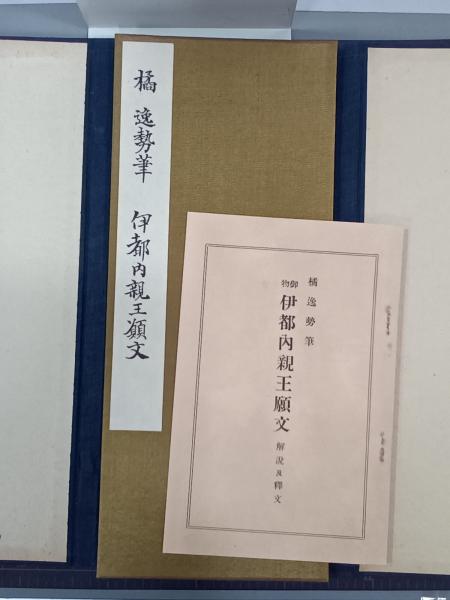 橘 逸勢筆 伊都内親王願文
橘逸勢筆
御物 伊都內親王願文 解說及釋文